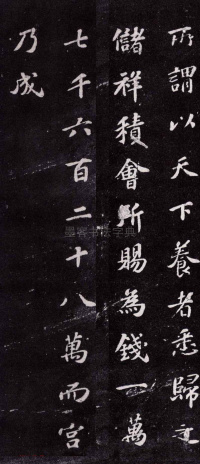 所謂以天下養者悉歸之
儲祥積會所賜為錢一萬
七千六百二十八萬而宮
乃成
书法字典